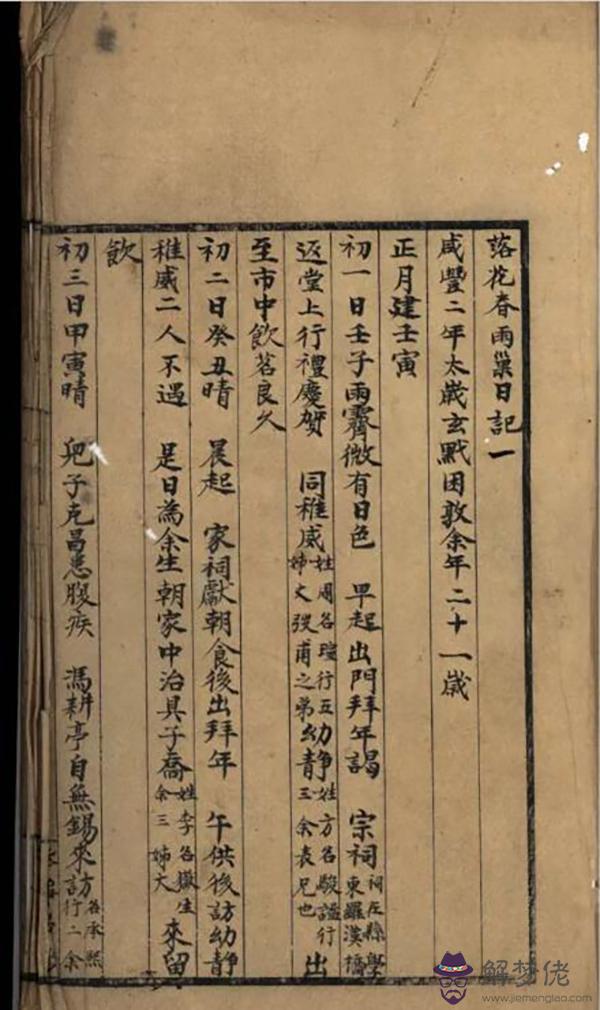 落花春雨巢日記一
咸豐二年太歲玄黓困敦余年二十一歲
正月建壬寅
初一日壬子雨霽微有日色 早起出門拜年謁 宗祠祠在縣學東羅漢橋
返堂上行禮慶賀 同稚威姓周名瑄行五姊丈弢甫之弟幼静姓方名駿謨行三余表兄也出
至市中飲茗良久
初二日癸丑晴 晨起 家祠獻朝食後出拜年 午供後訪幼静
稚威二人不遇 是日為余生朝家中治具子喬姓李名嶽生余三姊丈來留
飲
初三日甲寅晴 兒子克昌患腹疾 馮耕亭自無錫來訪名承熙行二余
解梦佬
www.jiemenglao.com